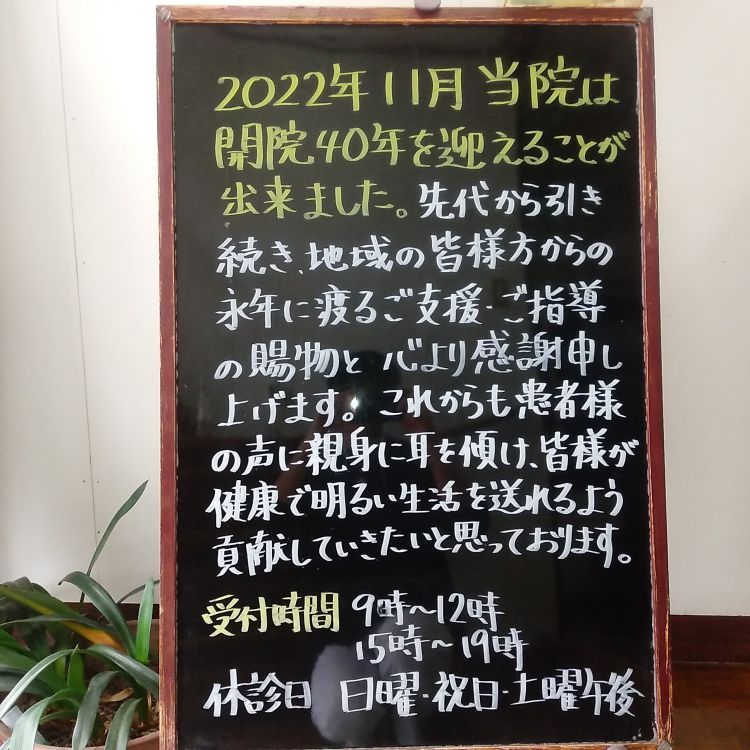 2022年11月 当院は
開院40年を迎えることが
出来ました。先代から引き
続き、地域の皆様方からの
永年に渡るご支援・ご指導
の賜物と 心より感謝申し
上げます。これからも患者様
の声に親身に耳を傾け、皆様が
健康で明るい生活を送れるよう
貢献していきたいと思っております。
受付時間 9時～12時
15時～19時
休診日 日曜・祝日・土曜午後